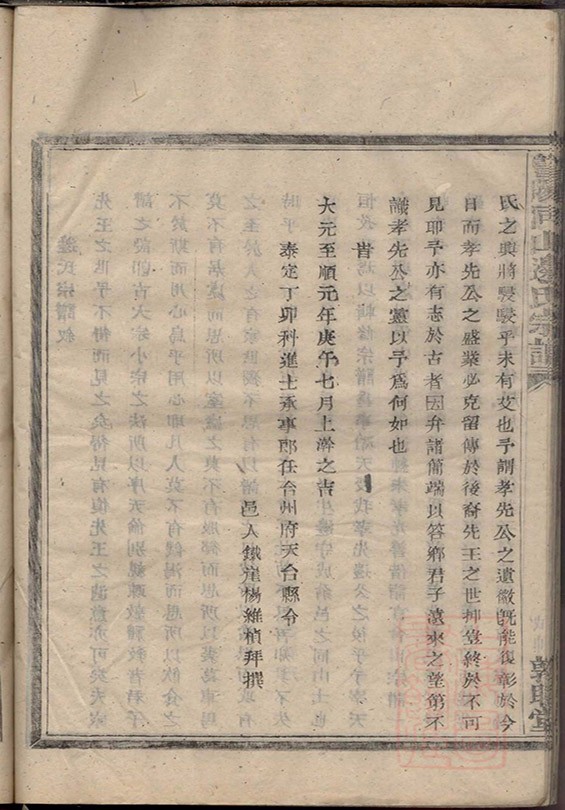 氏之興將駸駸乎未有艾也予謂孝先公之遺徽旣能復彰於今
日而孝先公之盛業必克留傳於後裔先王之世抑豈終於不可
見耶予亦有志於古者因弁諸簡端以答鄉君子遠來之望第不
識孝先公之靈以予爲何如也
旹
大元至順元年庚午七月上澣之吉
泰定丁卯科進士承事郎任台州府天台縣令
邑人鐵崖楊維楨拜撰
同山邊氏宗譜
敦睦堂